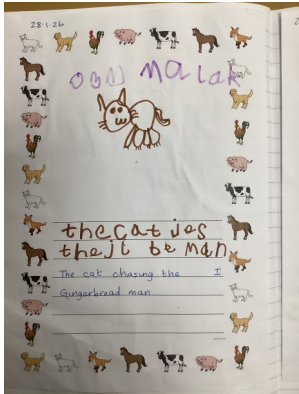 28.1.26
malak
thecat jes
the jt be man.
The cat chasing the I
Gingerbread man